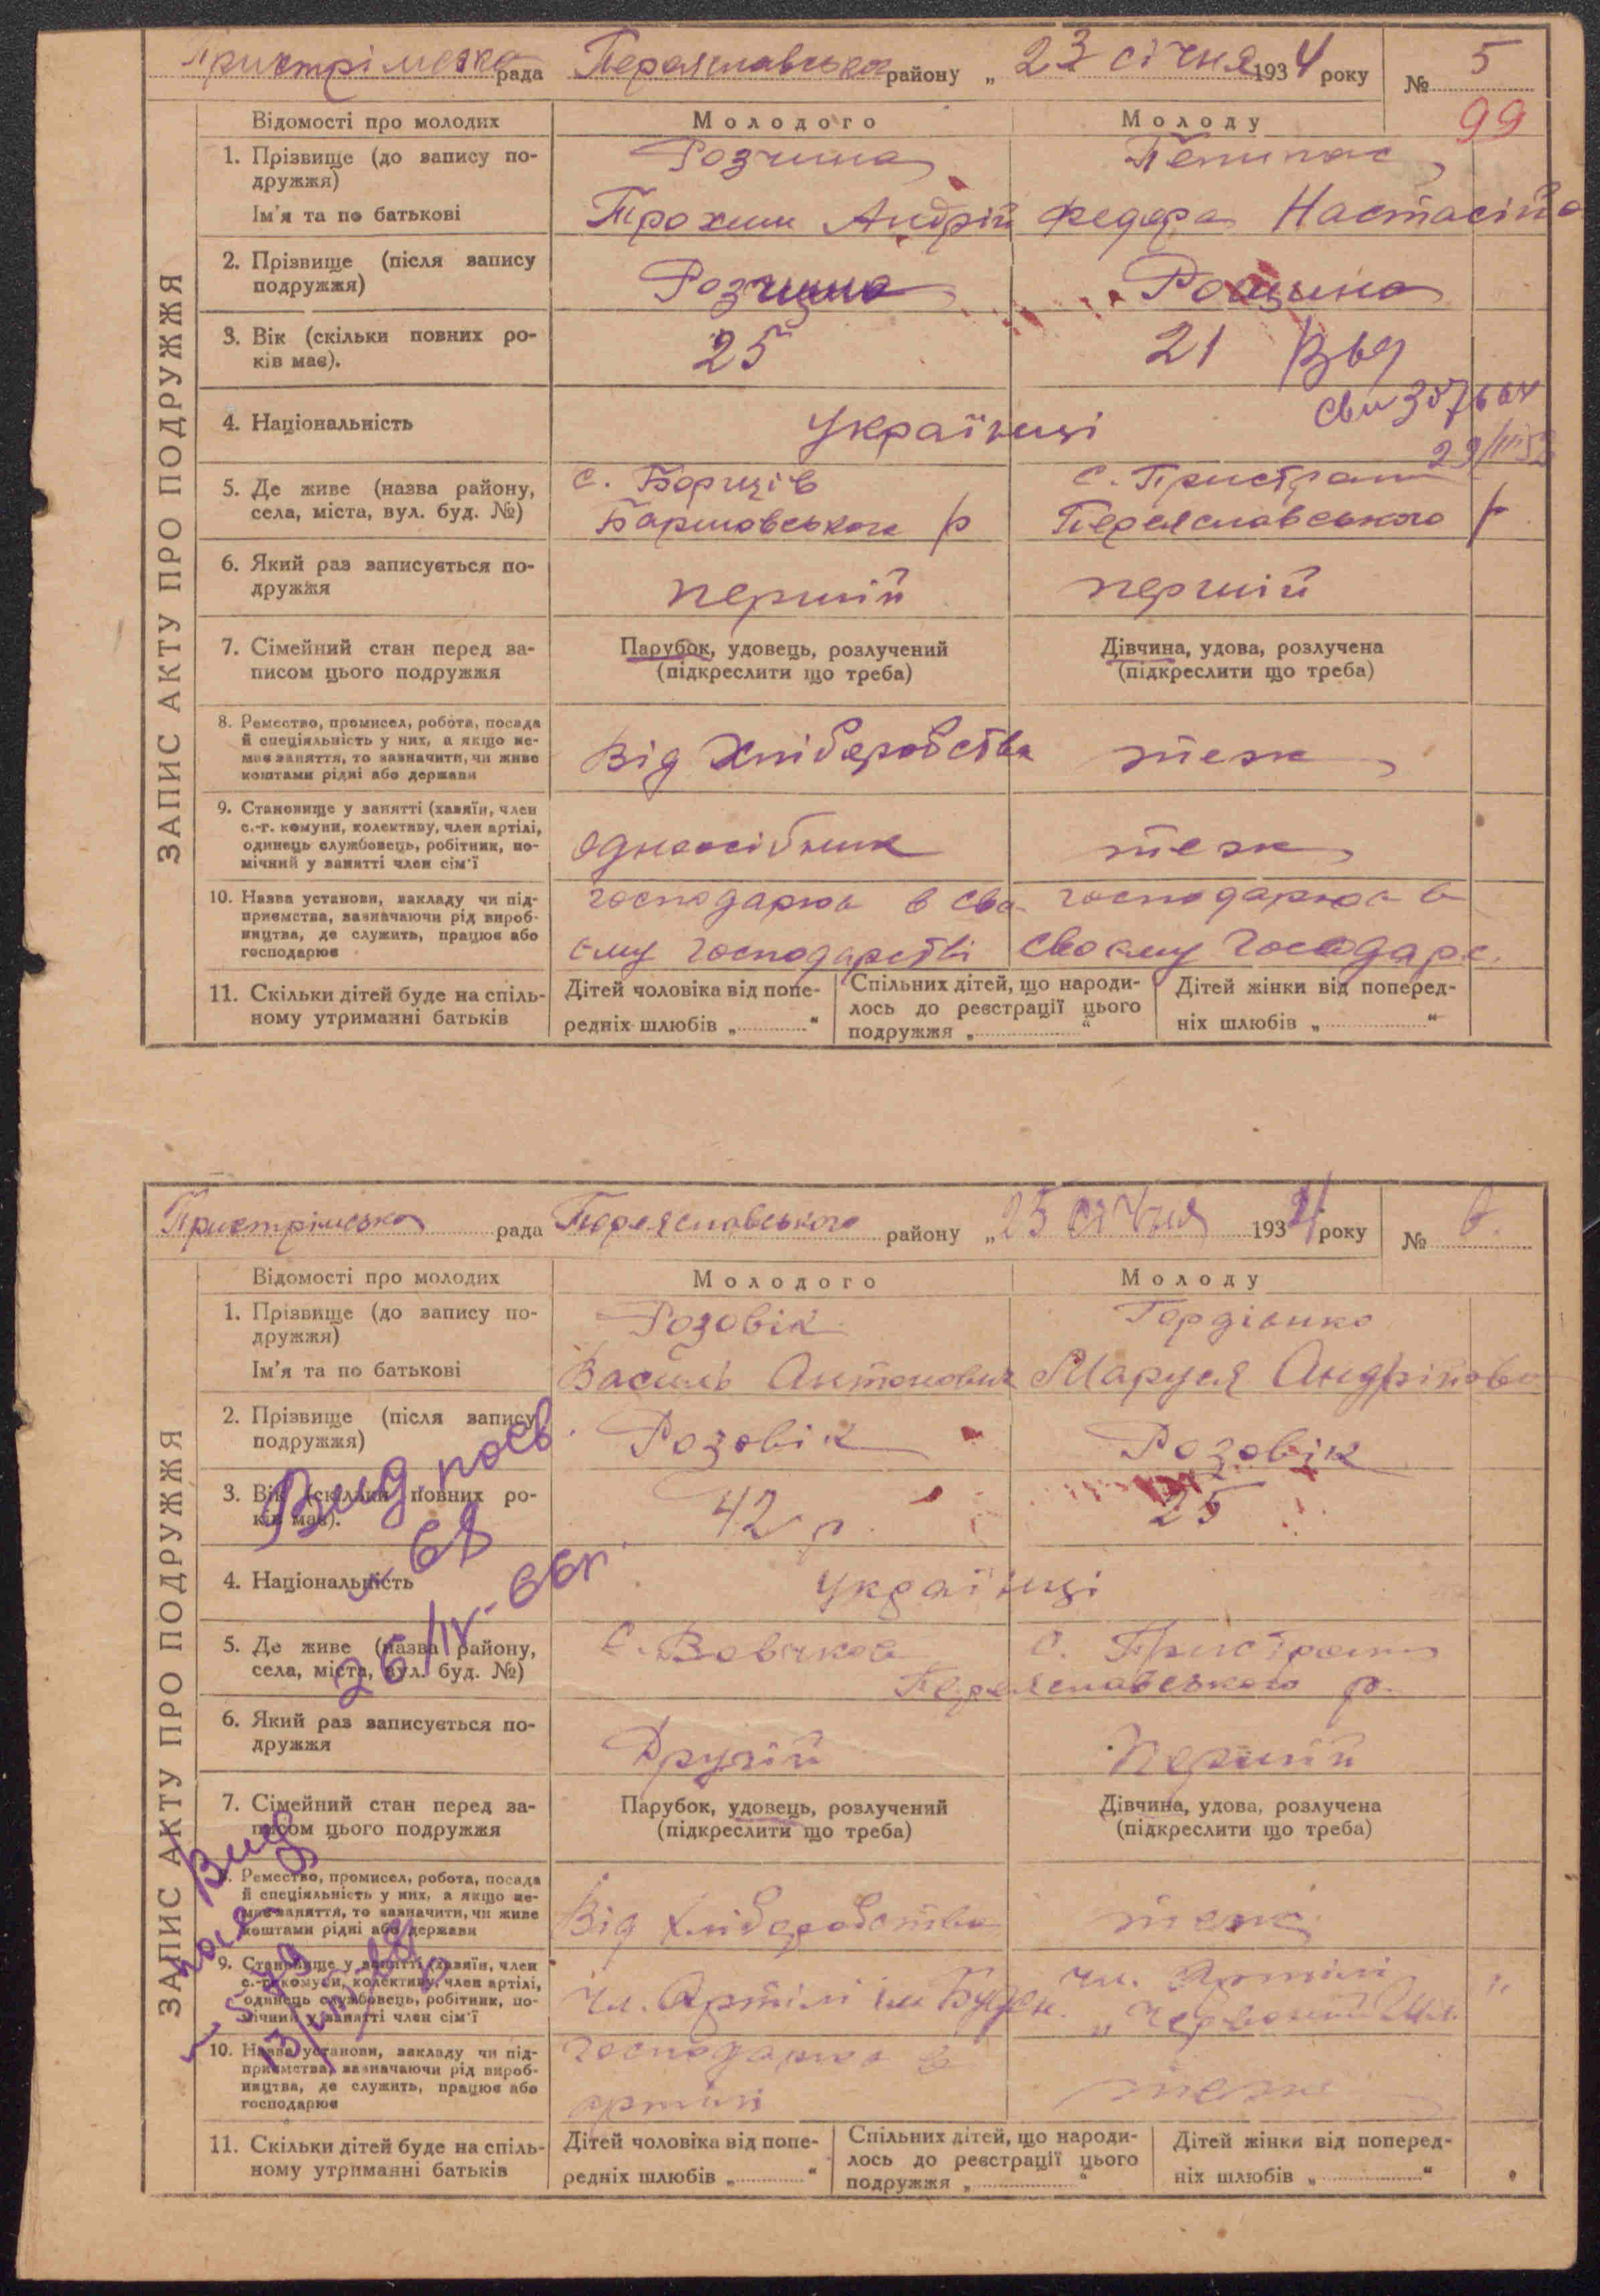 Пристрімська рада Переяславського району „ 23 січня 1934 року № 5
99
ЗАПИС АКТУ ПРО ПОДРУЖЖЯ
Відомості про молодих Молодого Молоду
1. Прізвище (до запису по-
дружжя) Розчина
Ім'я та по батькові Трохим Андрій Федора Настасій
2. Прізвище (після запису
подружжя) Розчина
3. Вік (скільки повних ро-
ків має). 25 21
4. Національність Українці
5. Де живе (назва району, с. Борщів с. Пристроми
села, міста, вул. буд. №) Баришовського р Переяславського р.
6. Який раз записується по-
дружжя першій першій
7. Сімейний стан перед за- Парубок, удовець, розлучений Дівчина, удова, розлучена
писом цього подружжя (підкреслити що треба) (підкреслити що треба)
8. Ремество, промисел, робота, посада
й спеціяльність у них, а якщо не-
має заняття, то зазначити, чи живе Від Хліборобства теж
коштами рідні або держави
9. Становище у занятті (хазяїн, член
с.-г. комуни, колективу, член артілі,
одинець службовець, робітник, по- одноосібник теж
мічний у занятті член сім'ї
10. Назва установи, закладу чи під- господарює в сво- господарює в
приємства, зазначаючи рід вироб-
ництва, де служить, працює або єму господарстві своєму
господарює
11. Скільки дітей буде на спіль- Дітей чоловіка від попе- Спільних дітей, що народи- Дітей жінки від поперед-
ному утриманні батьків редніх шлюбів „ “ лось до реєстрації цього ніх шлюбів „ “
подружжя „ “
Пристрімська рада Переяславського району „ 25 січня 1934 року № 6.
ЗАПИС АКТУ ПРО ПОДРУЖЖЯ
Відомості про молодих Молодого Молоду
1. Прізвище (до запису по-
дружжя) Розовік Гордієнко
Ім'я та по батькові Василь Антонович Маруся Андріївна
2. Прізвище (після запису
подружжя) Розовік Розовік
3. Вік (скільки повних ро-
ків має). 42 р. 25
4. Національність Українці
5. Де живе (назва району, с. Вовчков с. Пристроми
села, міста, вул. буд. №) Переяславського р.
6. Який раз записується по-
дружжя Другій Першій
7. Сімейний стан перед за- Парубок, удовець, розлучений Дівчина, удова, розлучена
писом цього подружжя (підкреслити що треба) (підкреслити що треба)
8. Ремество, промисел, робота, посада
й спеціяльність у них, а якщо не-
має заняття, то зазначити, чи живе Від Хліборобства теж
коштами рідні або держави
9. Становище у занятті (хазяїн, член
с.-г. комуни, колективу, член артілі, чл. Артілі
одинець службовець, робітник, по- чл. Артілі ім Буден.
мічний у занятті член сім'ї
10. Назва установи, закладу чи під- господарює в
приємства, зазначаючи рід вироб-
ництва, де служить, працює або артілі теж
господарює
11. Скільки дітей буде на спіль- Дітей чоловіка від попе- Спільних дітей, що народи- Дітей жінки від поперед-
ному утриманні батьків редніх шлюбів „ “ лось до реєстрації цього ніх шлюбів „ “
подружжя „ “